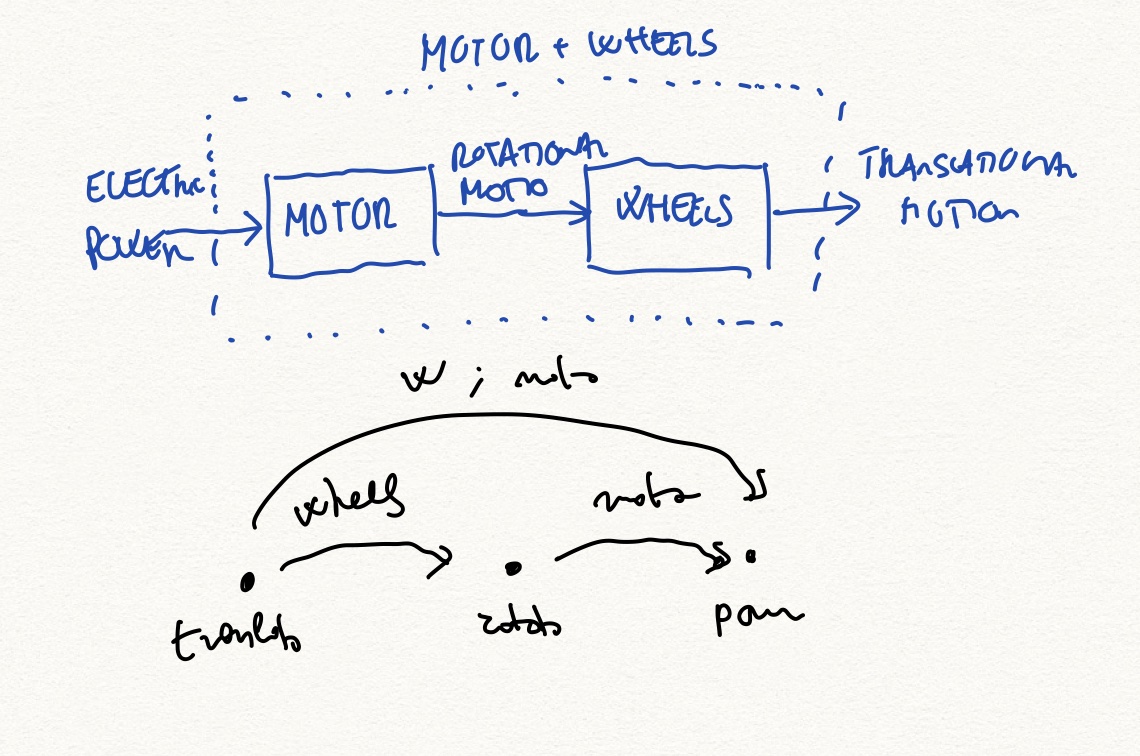 MOTOR + WHEELS
ELECTRIC
POWER
MOTOR
ROTATIONAL
MOTIO
WHEELS
TRANSLATIONAL
MOTION
W ; moto
wheels
moto